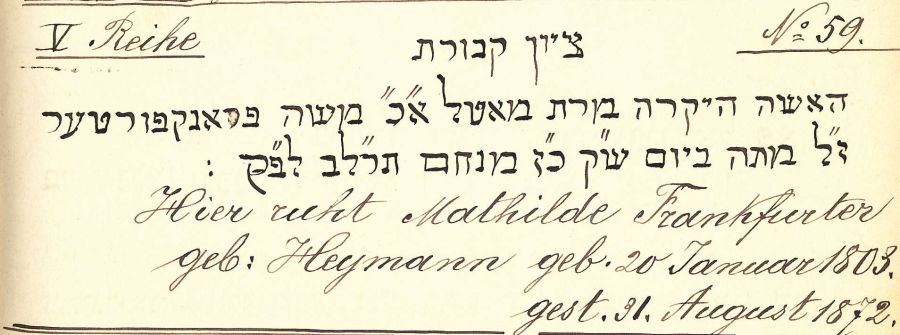 V Reihe
No 59.
ציון קבורת
האשה היקרה מרת מאטל א״כ״ משה פראנקפורטער
ז״ל מתה ביום ש״ק כ״ז מנחם תרל״ב לפ״ק :
Hier ruht Mathilde Frankfurter
geb: Heymann geb. 20 Januar 1803.
gest. 31. August 1872.